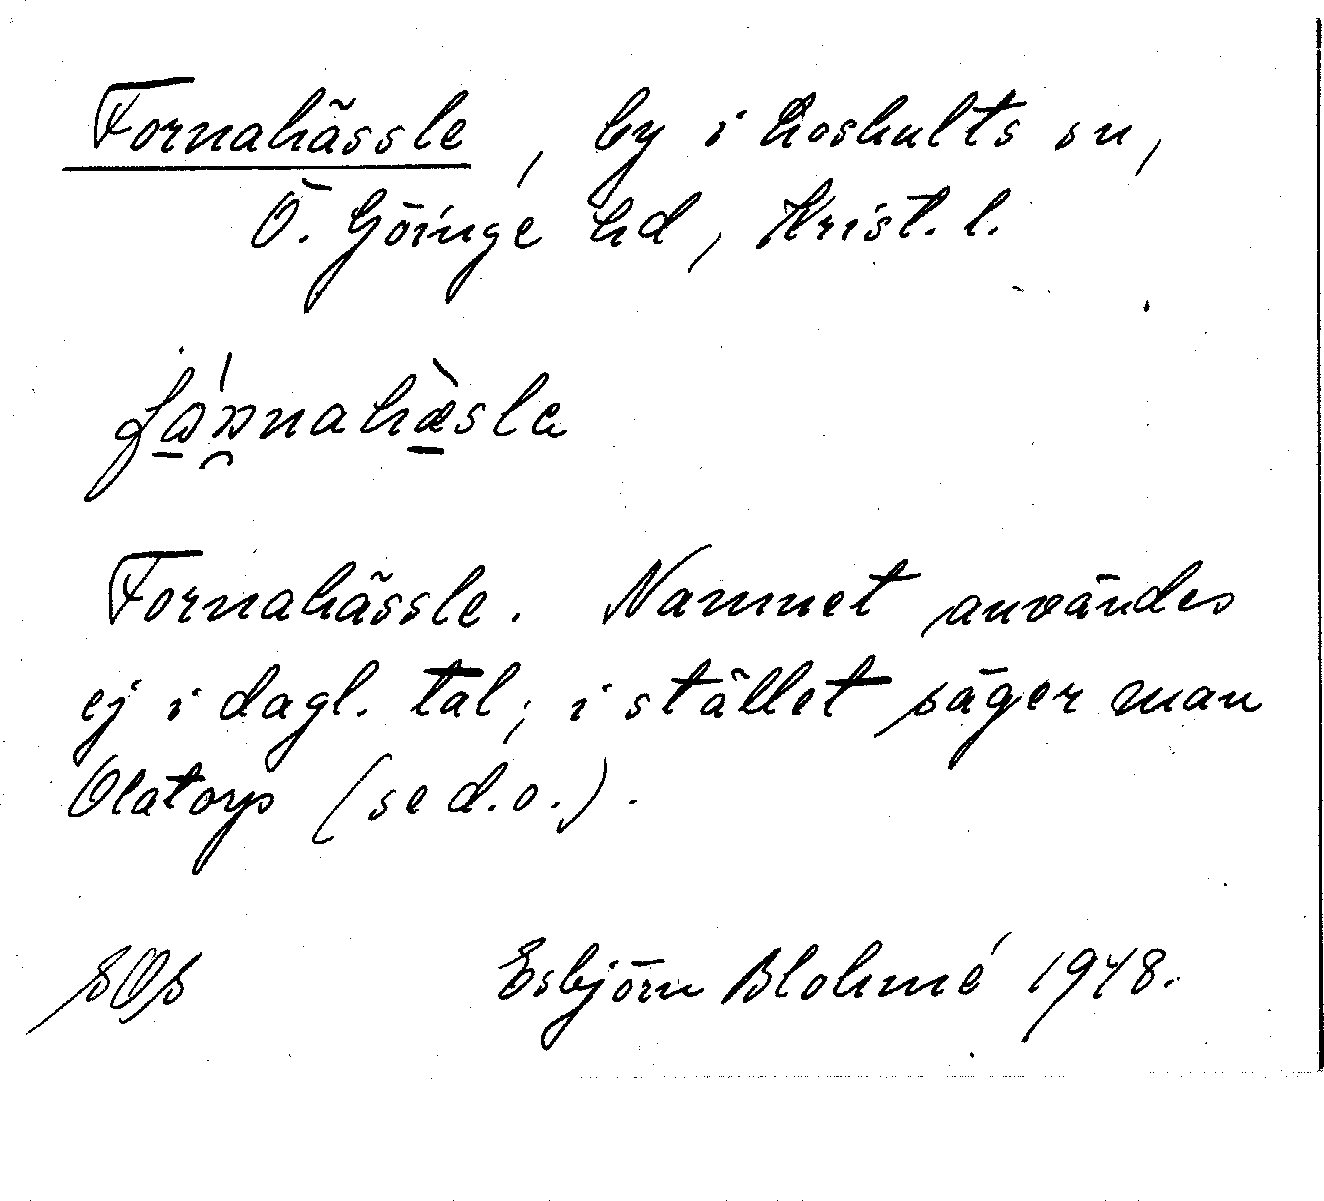 Fornahässle, by i Loshults sn,
Ö. Göinge hd, Krist. l.
Fornahässle. Namnet användes
ej i dagl. tal; i stället säger man
Olatorp (se d.o.).
SOS Esbjörn Blohmé 1948.